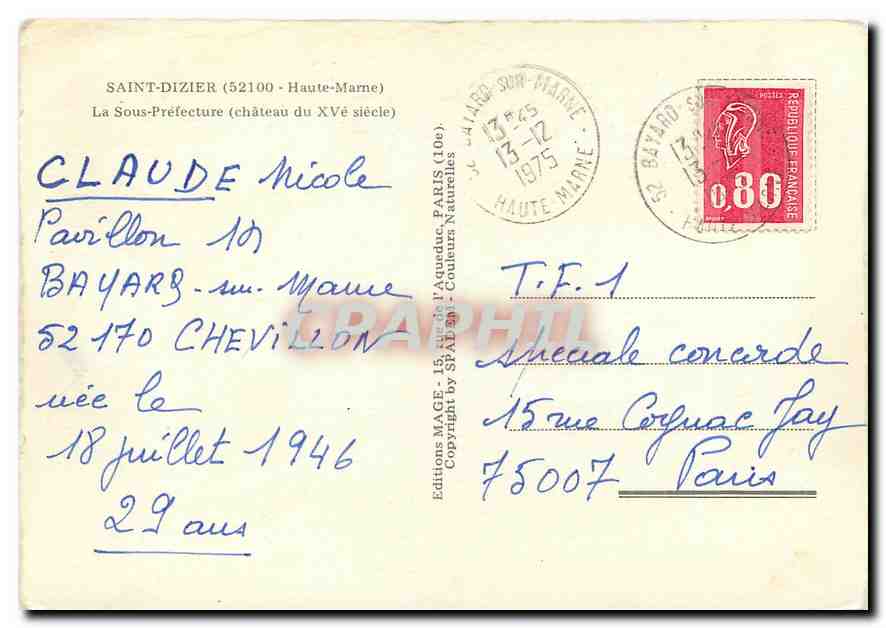 SAINT-DIZIER (52100 - Haute-Marne)
La Sous-Préfecture (château du XVé siécle)
CLAUDE Nicole
Pavillon
BAYARD-sur-Marne
52170 CHEVILLON
née le
18 juillet 1946
29 ans
Editions MAGE - 15, rue de l'Aqueduc, PARIS (10e).
Copyright by SPADEM - Couleurs Naturelles
52 BAYARD-SUR-MARNE
13H45
13-12
1975
HAUTE-MARNE
52 BAYARD-SU
13
13
HAUTE
POSTES
RÉPUBLIQUE FRANÇAISE
0,80
T.F.1
spéciale concorde
15 rue Cognac Jay
75007 Paris
CPAPHIL